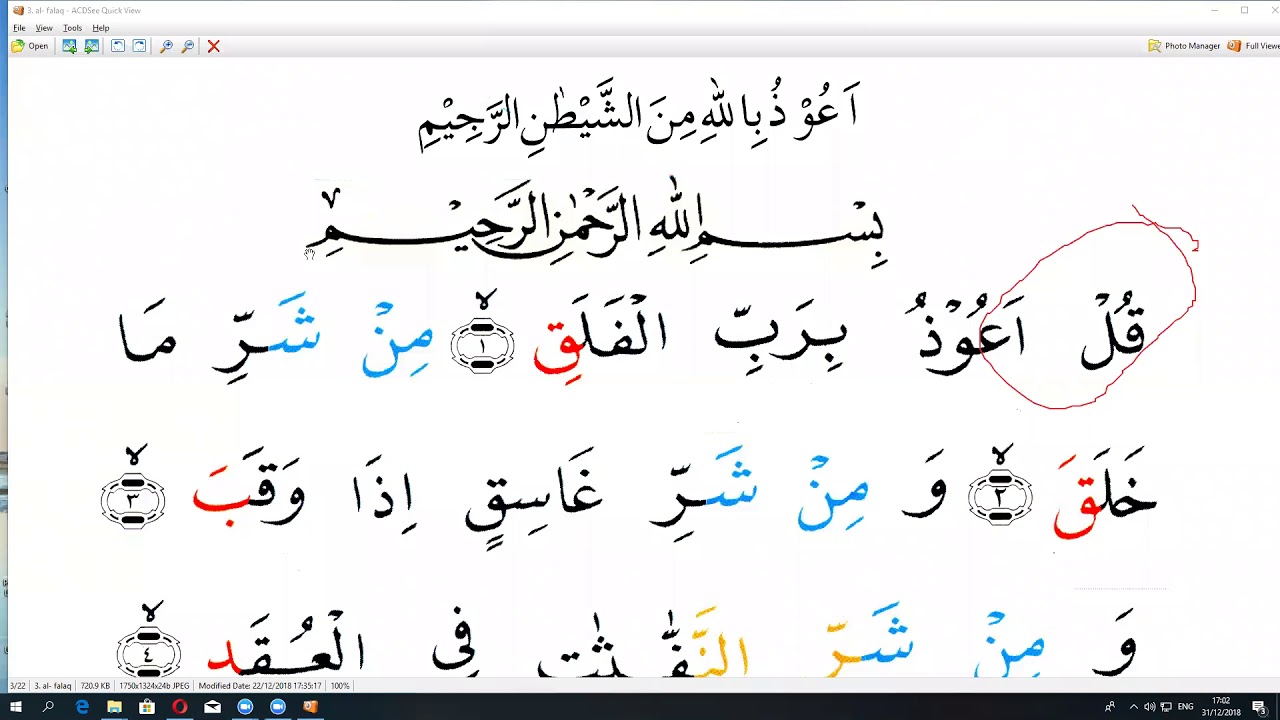 3. al- falaq - ACDSee Quick View
File View Tools Help
Open Photo Manager Full Viewe
اَعُوْذُ بِاللّٰهِ مِنَ الشَّيْطٰنِ الرَّجِيْمِ
بِسْمِ اللّٰهِ الرَّحْمٰنِ الرَّحِيْمِ
قُلْ اَعُوْذُ بِرَبِّ الْفَلَقِ ۙ ١ مِنْ شَرِّ مَا
خَلَقَ ۙ ٢ وَ مِنْ شَرِّ غَاسِقٍ اِذَا وَقَبَ ۙ ٣
وَ مِنْ شَرِّ النَّفّٰثٰتِ فِى الْعُقَدِ ۙ ٤
3/22 3. al- falaq 720.9 KB 1750x1324x24b JPEG Modified Date: 22/12/2018 17:35:17 100%
ENG 17:02
31/12/2018